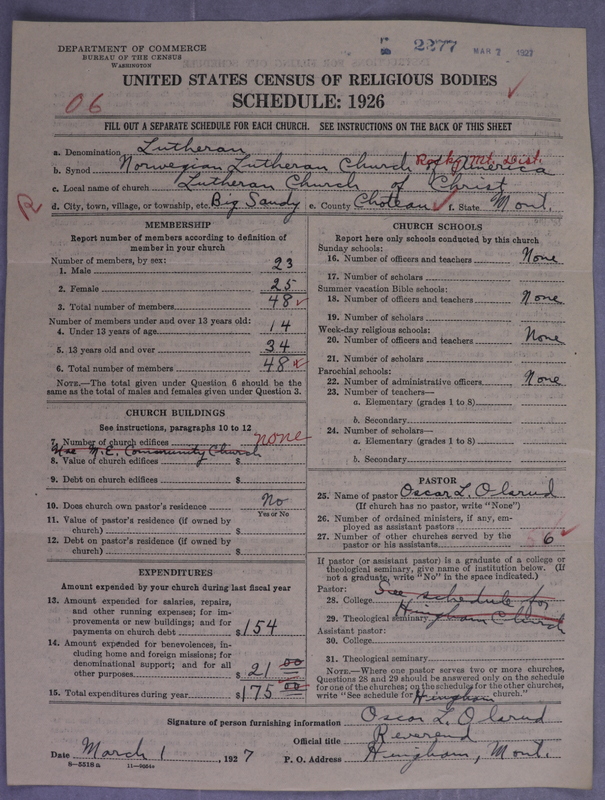 DEPARTMENT OF COMMERCE
BUREAU OF THE CENSUS
WASHINGTON
2277
MAR 7 1927
UNITED STATES CENSUS OF RELIGIOUS BODIES
SCHEDULE: 1926
06
FILL OUT A SEPARATE SCHEDULE FOR EACH CHURCH. SEE INSTRUCTIONS ON THE BACK OF THIS SHEET
a. Denomination Lutheran
b. Synod Norwegian Lutheran Church of America Rocky Mt. Dist.
c. Local name of church Lutheran Church of Christ
R d. City, town, village, or township, etc. Big Sandy e. County Choteau f. State Mont.
MEMBERSHIP
Report number of members according to definition of
member in your church
Number of members, by sex:
1. Male 23
2. Female 25
3. Total number of members 48
Number of members under and over 13 years old:
4. Under 13 years of age 14
5. 13 years old and over 34
6. Total number of members 48
NOTE.—The total given under Question 6 should be the
same as the total of males and females given under Question 3.
CHURCH BUILDINGS
See instructions, paragraphs 10 to 12
7. Number of church edifices none
Use M.E. Community Church
8. Value of church edifices $
9. Debt on church edifices $
10. Does church own pastor's residence No
Yes or No
11. Value of pastor's residence (if owned by
church) $
12. Debt on pastor's residence (if owned by
church) $
EXPENDITURES
Amount expended by your church during last fiscal year
13. Amount expended for salaries, repairs,
and other running expenses; for im-
provements or new buildings; and for
payments on church debt $154
14. Amount expended for benevolences, in-
cluding home and foreign missions; for
denominational support; and for all
other purposes $ 21 00
15. Total expenditures during year $175 00
CHURCH SCHOOLS
Report here only schools conducted by this church
Sunday schools:
16. Number of officers and teachers None
17. Number of scholars
Summer vacation Bible schools:
18. Number of officers and teachers None
19. Number of scholars
Week-day religious schools:
20. Number of officers and teachers None
21. Number of scholars
Parochial schools:
22. Number of administrative officers None
23. Number of teachers—
a. Elementary (grades 1 to 8)
b. Secondary
24. Number of scholars—
a. Elementary (grades 1 to 8)
b. Secondary
PASTOR
25. Name of pastor Oscar L. Olsrud
(If church has no pastor, write "None")
26. Number of ordained ministers, if any, em-
ployed as assistant pastors
27. Number of other churches served by the
pastor or his assistants 6
If pastor (or assistant pastor) is a graduate of a college or
theological seminary, give name of institution below. (If
not a graduate, write "No" in the space indicated.)
Pastor:
28. College See schedule for
29. Theological seminary Hingham Church
Assistant pastor:
30. College
31. Theological seminary
NOTE.—Where one pastor serves two or more churches,
Questions 28 and 29 should be answered only on the schedule
for one of the churches; on the schedule for the other churches,
write "See schedule for Hingham church."
Signature of person furnishing information Oscar L. Olsrud
Official title Reverend
Date March 1, 1927 P. O. Address Hingham, Mont.
8-5518a 11-9034